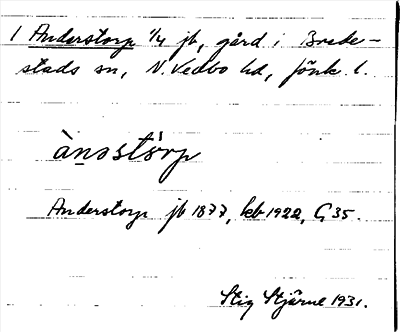 1 Anderstorp 1/4 jb, gård i Brede-
stads sn, N. Vedbo hd, Jönk. l.
ànostórp
Anderstorp jb 1877, kb 1922, G 35.
Stig Stjärne 1931.